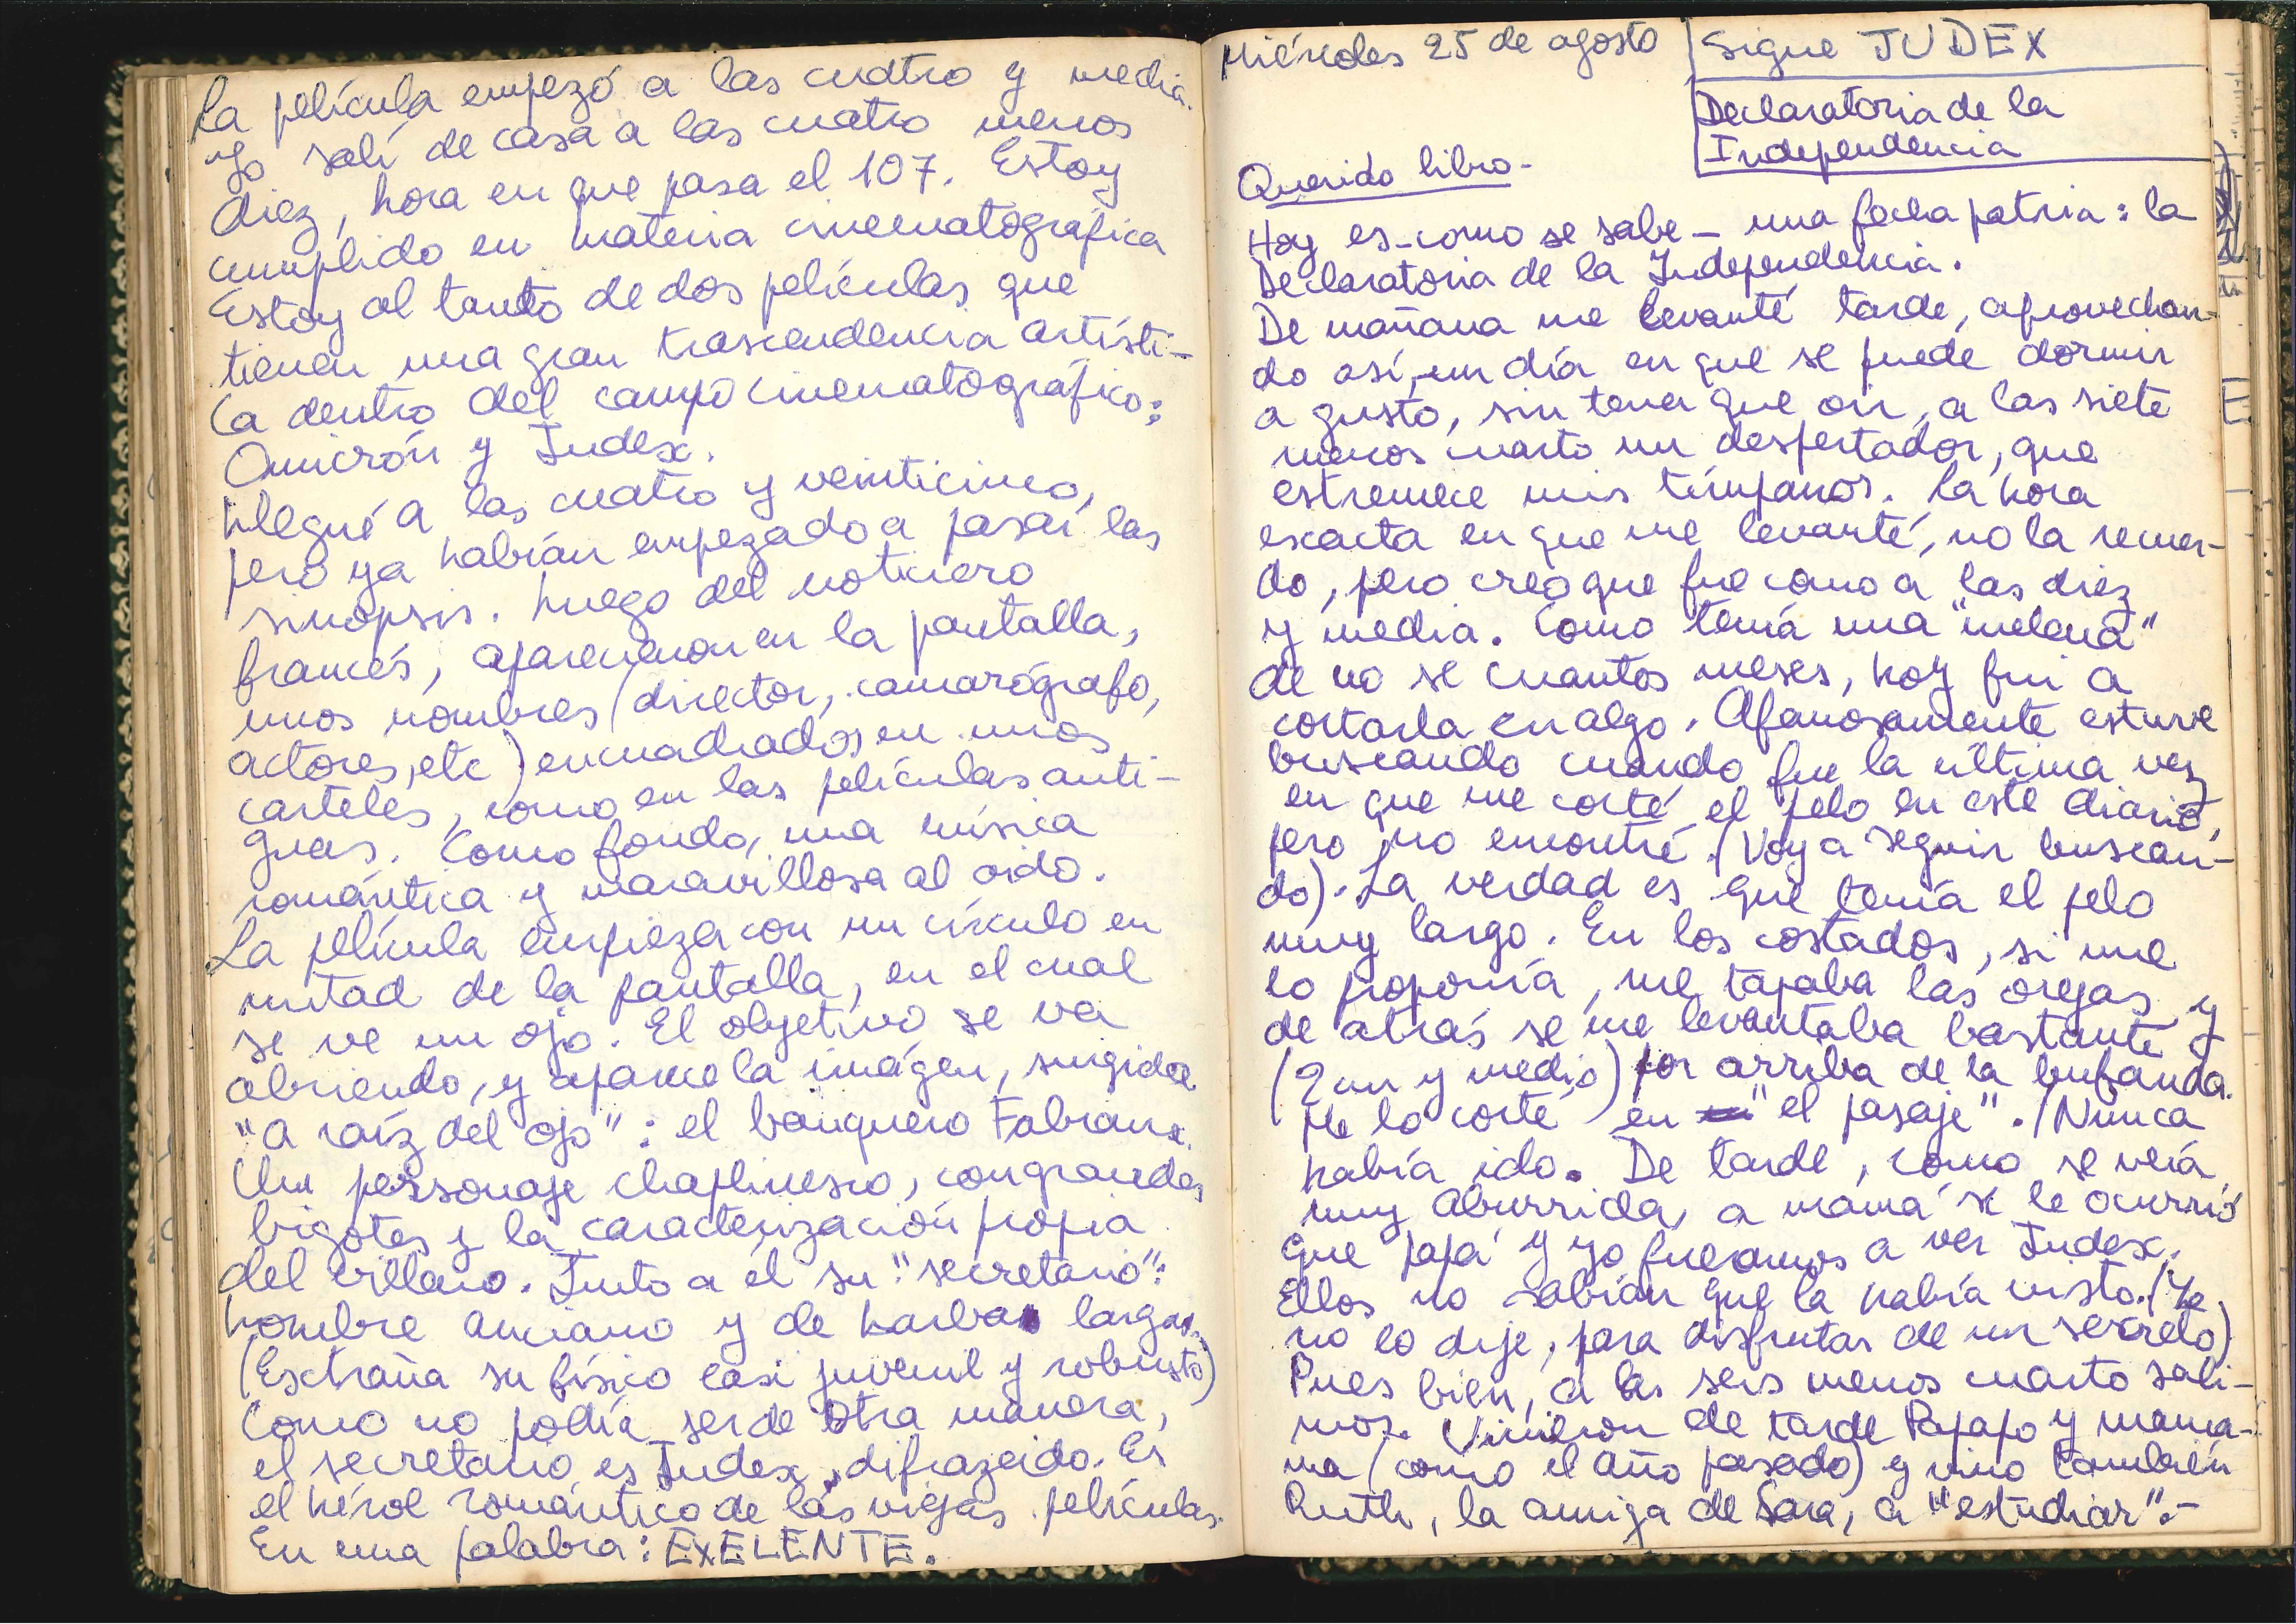 La película empezó a las cuatro y media.
Yo salí de casa a las cuatro menos
diez, hora en que pasa el 107. Estoy
cumplido en materia cinematográfica
Estoy al tanto de dos películas que
tienen una gran trascendencia artísti-
ca dentro del campo cinematográfico:
Omicrón y Judex.
Llegué a las cuatro y veinticinco,
pero ya habían empezado a pasar las
sinopsis. Luego del noticiero
francés, aparecieron en la pantalla,
unos nombres (director, camarógrafo,
actores, etc) encuadrados en unos
carteles, como en las películas anti-
guas. Como fondo, una música
romántica y maravillosa al oido.
La película empieza con un círculo en
mitad de la pantalla, en el cual
se ve un ojo. El objetivo se va
abriendo, y aparece la imágen, surgida
"a raíz del ojo": el banquero Fabraux.
Un personaje chaplinesco, con grandes
bigotes y la caracterización propia
del villano. Junto a él su "secretario":
hombre anciano y de barbas largas.
(Extraña su físico casi juvenil y robusto)
Como no podía ser de otra manera,
el secretario es Judex, difrazado. Es
el héroe romántico de las viejas películas.
En una palabra: EXELENTE.
Miércoles 25 de agosto
Sigue JUDEX
Declaratoria de la
Independencia
Querido libro-
Hoy es-como se sabe- una fecha patria: la
Declaratoria de la Independencia.
De mañana me levanté tarde, aprovechan-
do así, un día en que se puede dormir
a gusto, sin tener que oir, a las siete
menos cuarto un despertador, que
estremece mis tímpanos. La hora
exacta en que me levanté, no la recuer-
do, pero creo que fue como a las diez
y media. Como tenía una "melena"
de no se cuantos meses, hoy fui a
cortarla en algo. Afanosamente estuve
buscando cuando fue la última vez
en que me corté el pelo en este diario,
pero no encontré. (Voy a seguir buscan-
do). La verdad es que tenía el pelo
muy largo. En los costados, si me
lo proponía, me tapaba las orejas y
de atrás se me levantaba bastante
(2 cm y medio) por arriba de la bufanda.
Me lo corté en "el pasaje". (Nunca
había ido. De tarde, como se verá
muy aburrida, a mamá se le ocurrió
que papá y yo fueramos a ver Judex.
Ellos no sabían que la había visto. (Yo
no lo dije, para disfrutar de un secreto)
Pues bien, a las seis menos cuarto sali-
mos. Vinieron de tarde Papapo y mama-
ma (como el año pasado) y vino también
Ruth, la amiga de Sara, a "estudiar".-